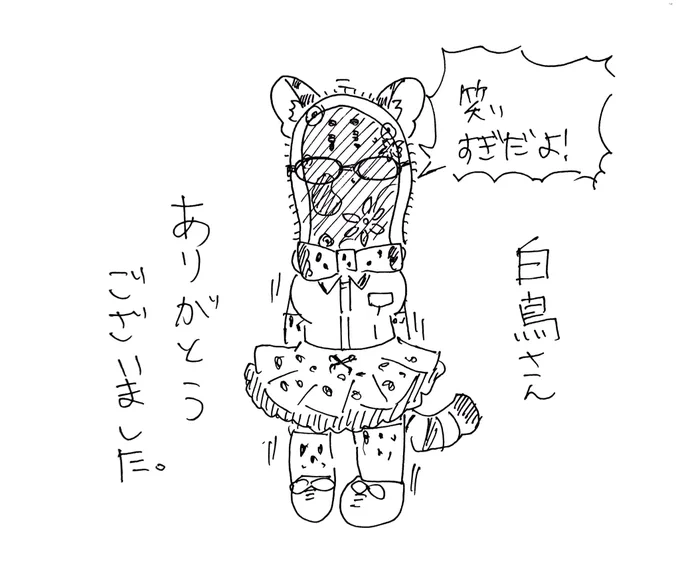 笑い
すぎだよ!
白鳥さん
ありがとう
ございました。